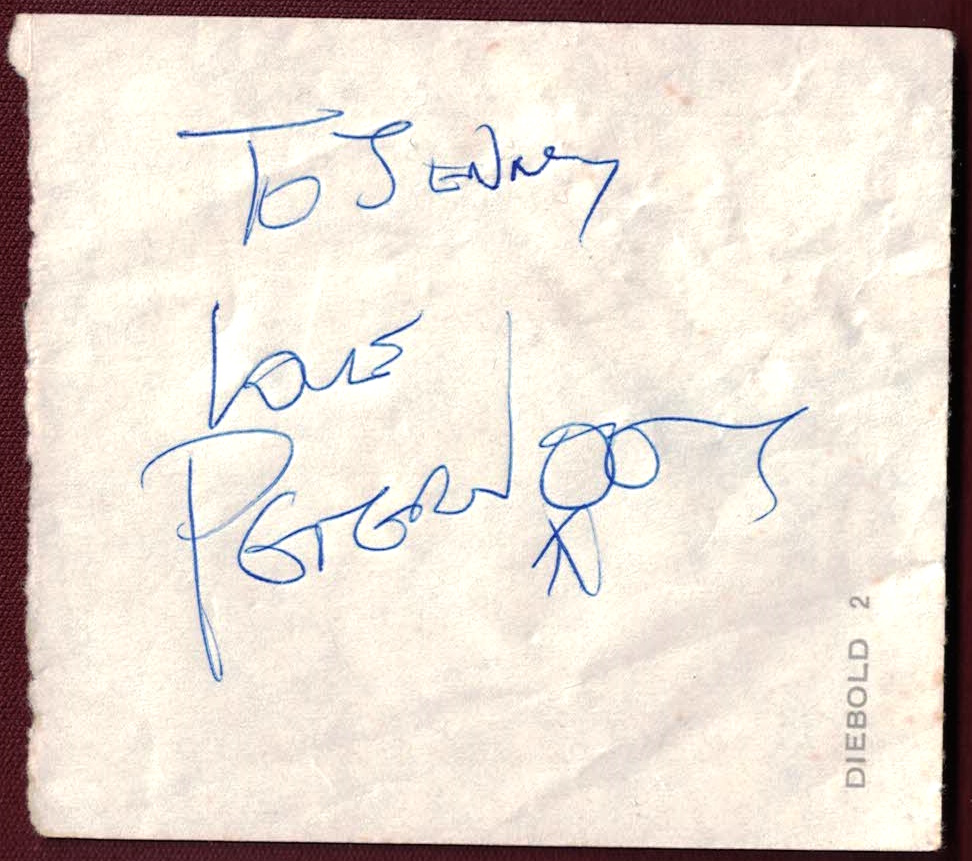 TO JENNY
LOVE
PETER
DIEBOLD 2